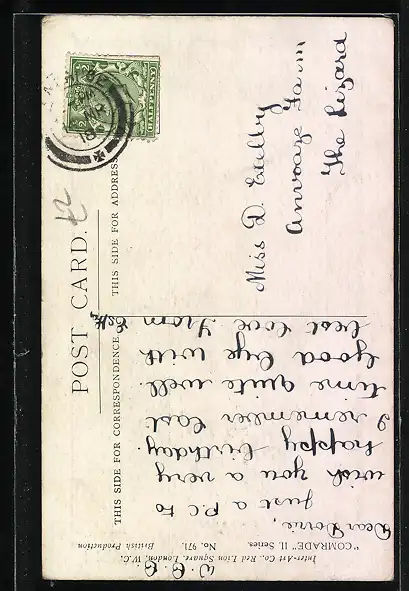 POST CARD.
THIS SIDE FOR CORRESPONDENCE
THIS SIDE FOR ADDRESS
Dear Dorrie,
just a P.C to
wish you a very
happy birthday.
I remember last
time quite well.
Good bye with
best love from
Miss D.
Farm
The Lizard
"COMRADE" II. Series. No. 971. British Production
Inter-Art Co., Red Lion Square, London, W.C.
£2